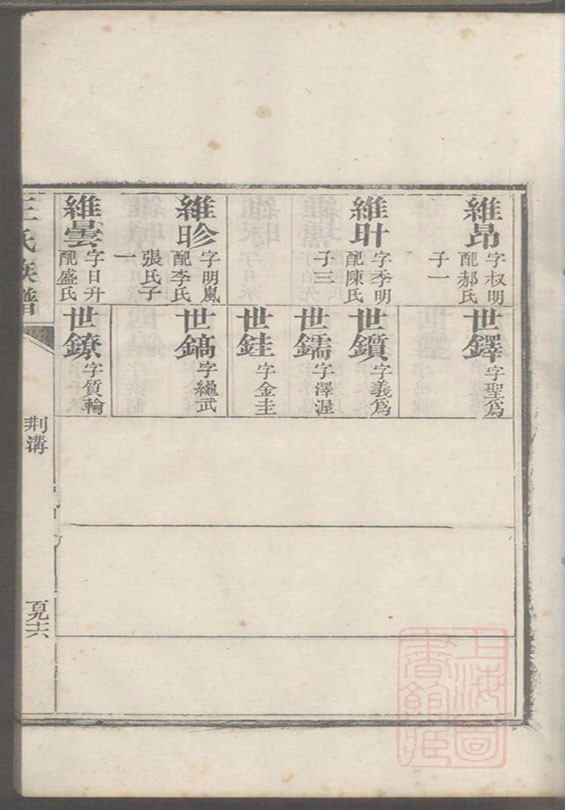 維昂
字叔明
配郝氏
子一
世鐸
字聖爲
維叶
字季明
配陳氏
子三
世鑽
字義爲
世鑐
字澤渥
世銈
字金圭
維昣
字明嵐
配李氏
張氏子
一
世鎬
字繩武
維曇
字日升
配盛氏
世鐐
字質輪
王氏族譜
荆溝
上海圖書館藏